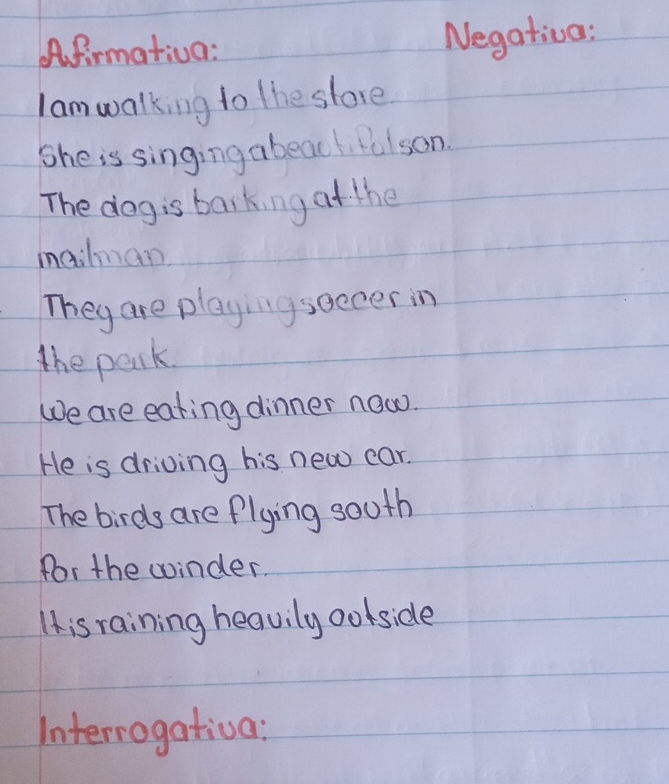 Afirmativa:
Negativa:
I am walking to the store.
She is singing a beautiful son.
The dog is barking at the
mailman.
They are playing soccer in
the park.
We are eating dinner now.
He is driving his new car.
The birds are flying south
for the winder.
It is raining heavily outside
Interrogativa: